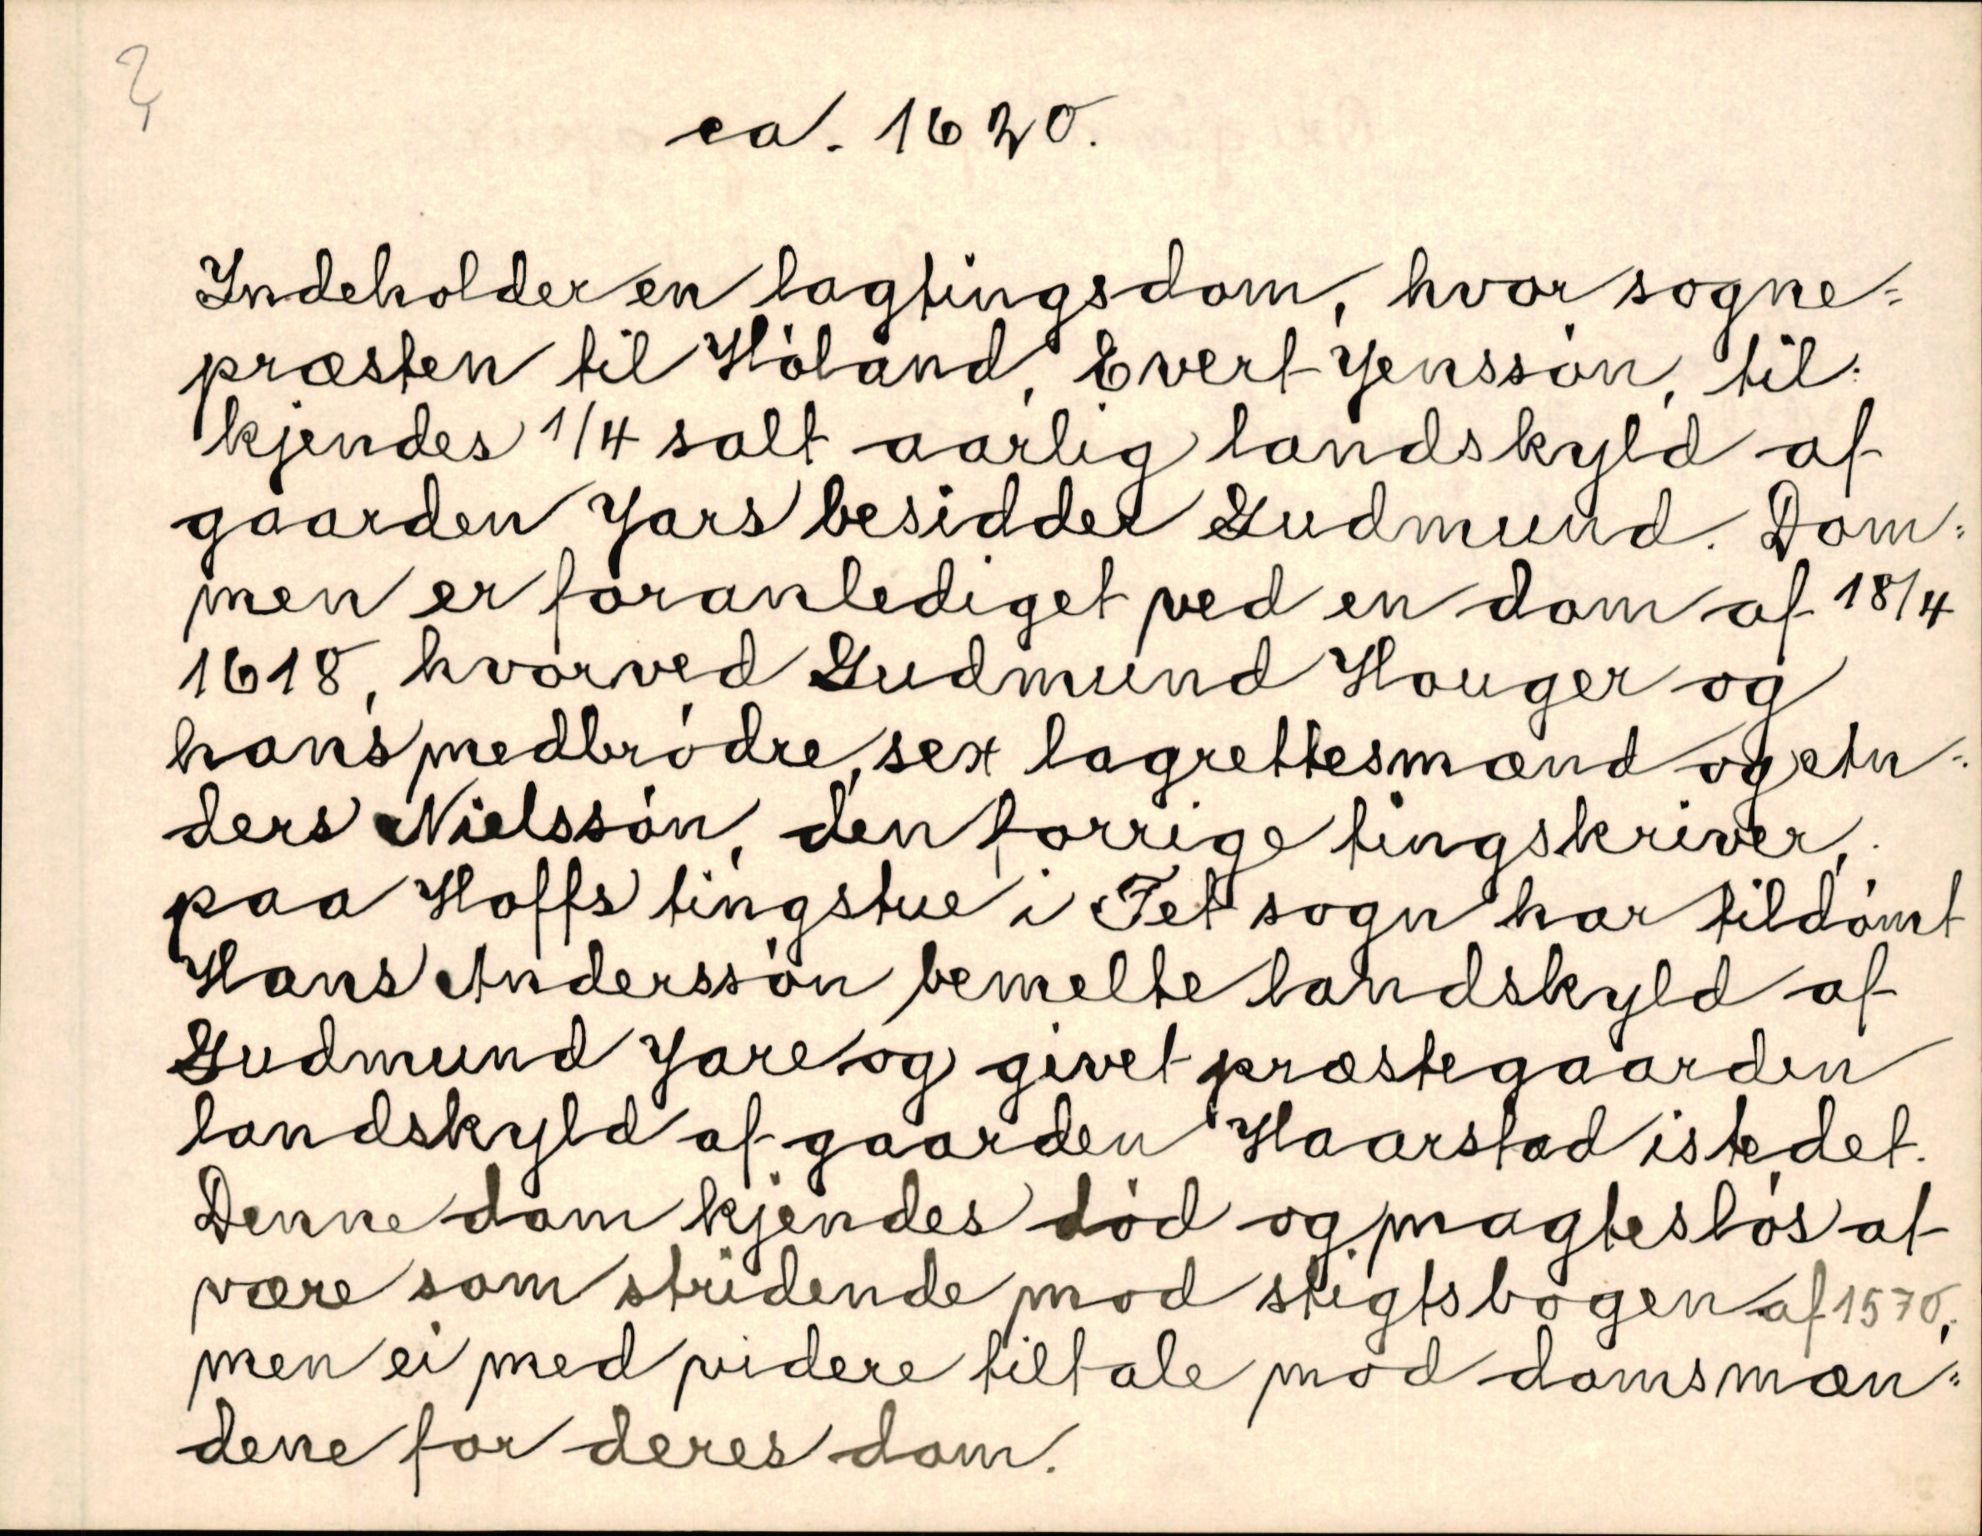 ca. 1620.
Indeholder en lagtingsdom, hvor sogne=
præsten til Höland, Evert Jenssön, til=
kjendes 1/4 salt aarlig landskyld af
gaarden Jars besidder Gudmund. Dom=
men er foranlediget ved en dom af 18/4
1618, hvorved Gudmund Houger og
hans medbrödre, sex lagrettesmænd og An=
ders Nielssön, den forrige tingskriver,
paa Hoffs tingstue i Fet sogn har tildömt
Hans Anderssön bemelte landskyld af
Gudmund Jare og givet præstegaarden
landskyld af gaarden Haarstad istedet.
Denne dom kjendes död og magteslös at
være som stridende mod stigtsbogen af 1570,
men ei med videre tiltale mod domsmæn=
dene for deres dom.